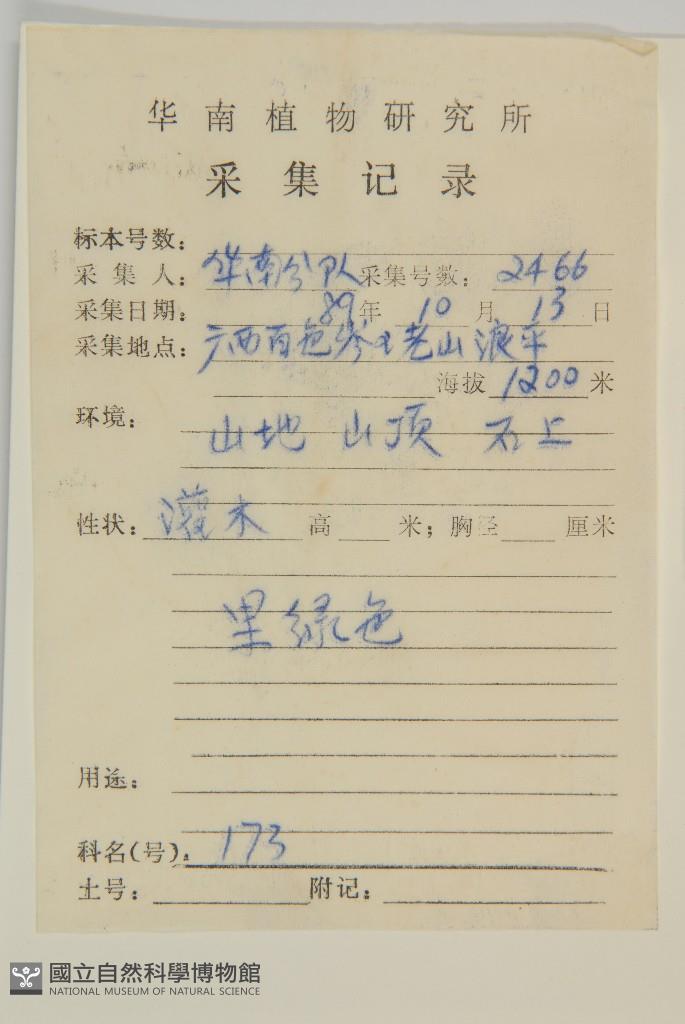 华南植物研究所
采集记录
标本号数:
采集人: 华南分队 采集号数: 2466
采集日期: 89年 10月 13日
采集地点: 广西百色岑王老山浪平
海拔 1200 米
环境: 山地 山顶 石上
性状: 灌木 高 米; 胸径 厘米
里绿色
用途:
科名(号): 173
土号: 附记:
國立自然科學博物館
NATIONAL MUSEUM OF NATURAL SCIENCE